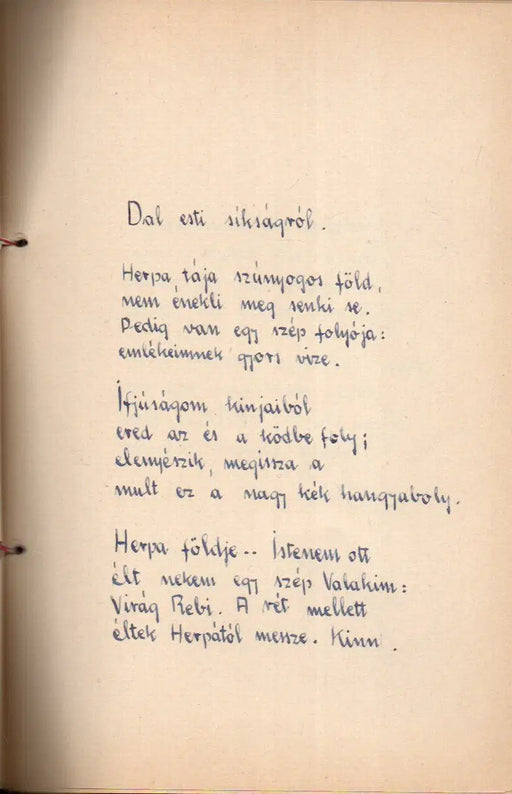 Dal esti síkságról.
Herpa tája szúnyogos föld,
nem énekli meg senki se.
Pedig van egy szép folyója:
emlékeimnek gyors vize.
Ifjúságom kínjaiból
ered az és a ködbe foly;
elenyészik, megissza a
mult ez a nagy kék hangyaboly.
Herpa földje.. Istenem ott
élt nekem egy szép Valakim:
Virág Rebi. A rét mellett
éltek Herpától messze. Kinn.